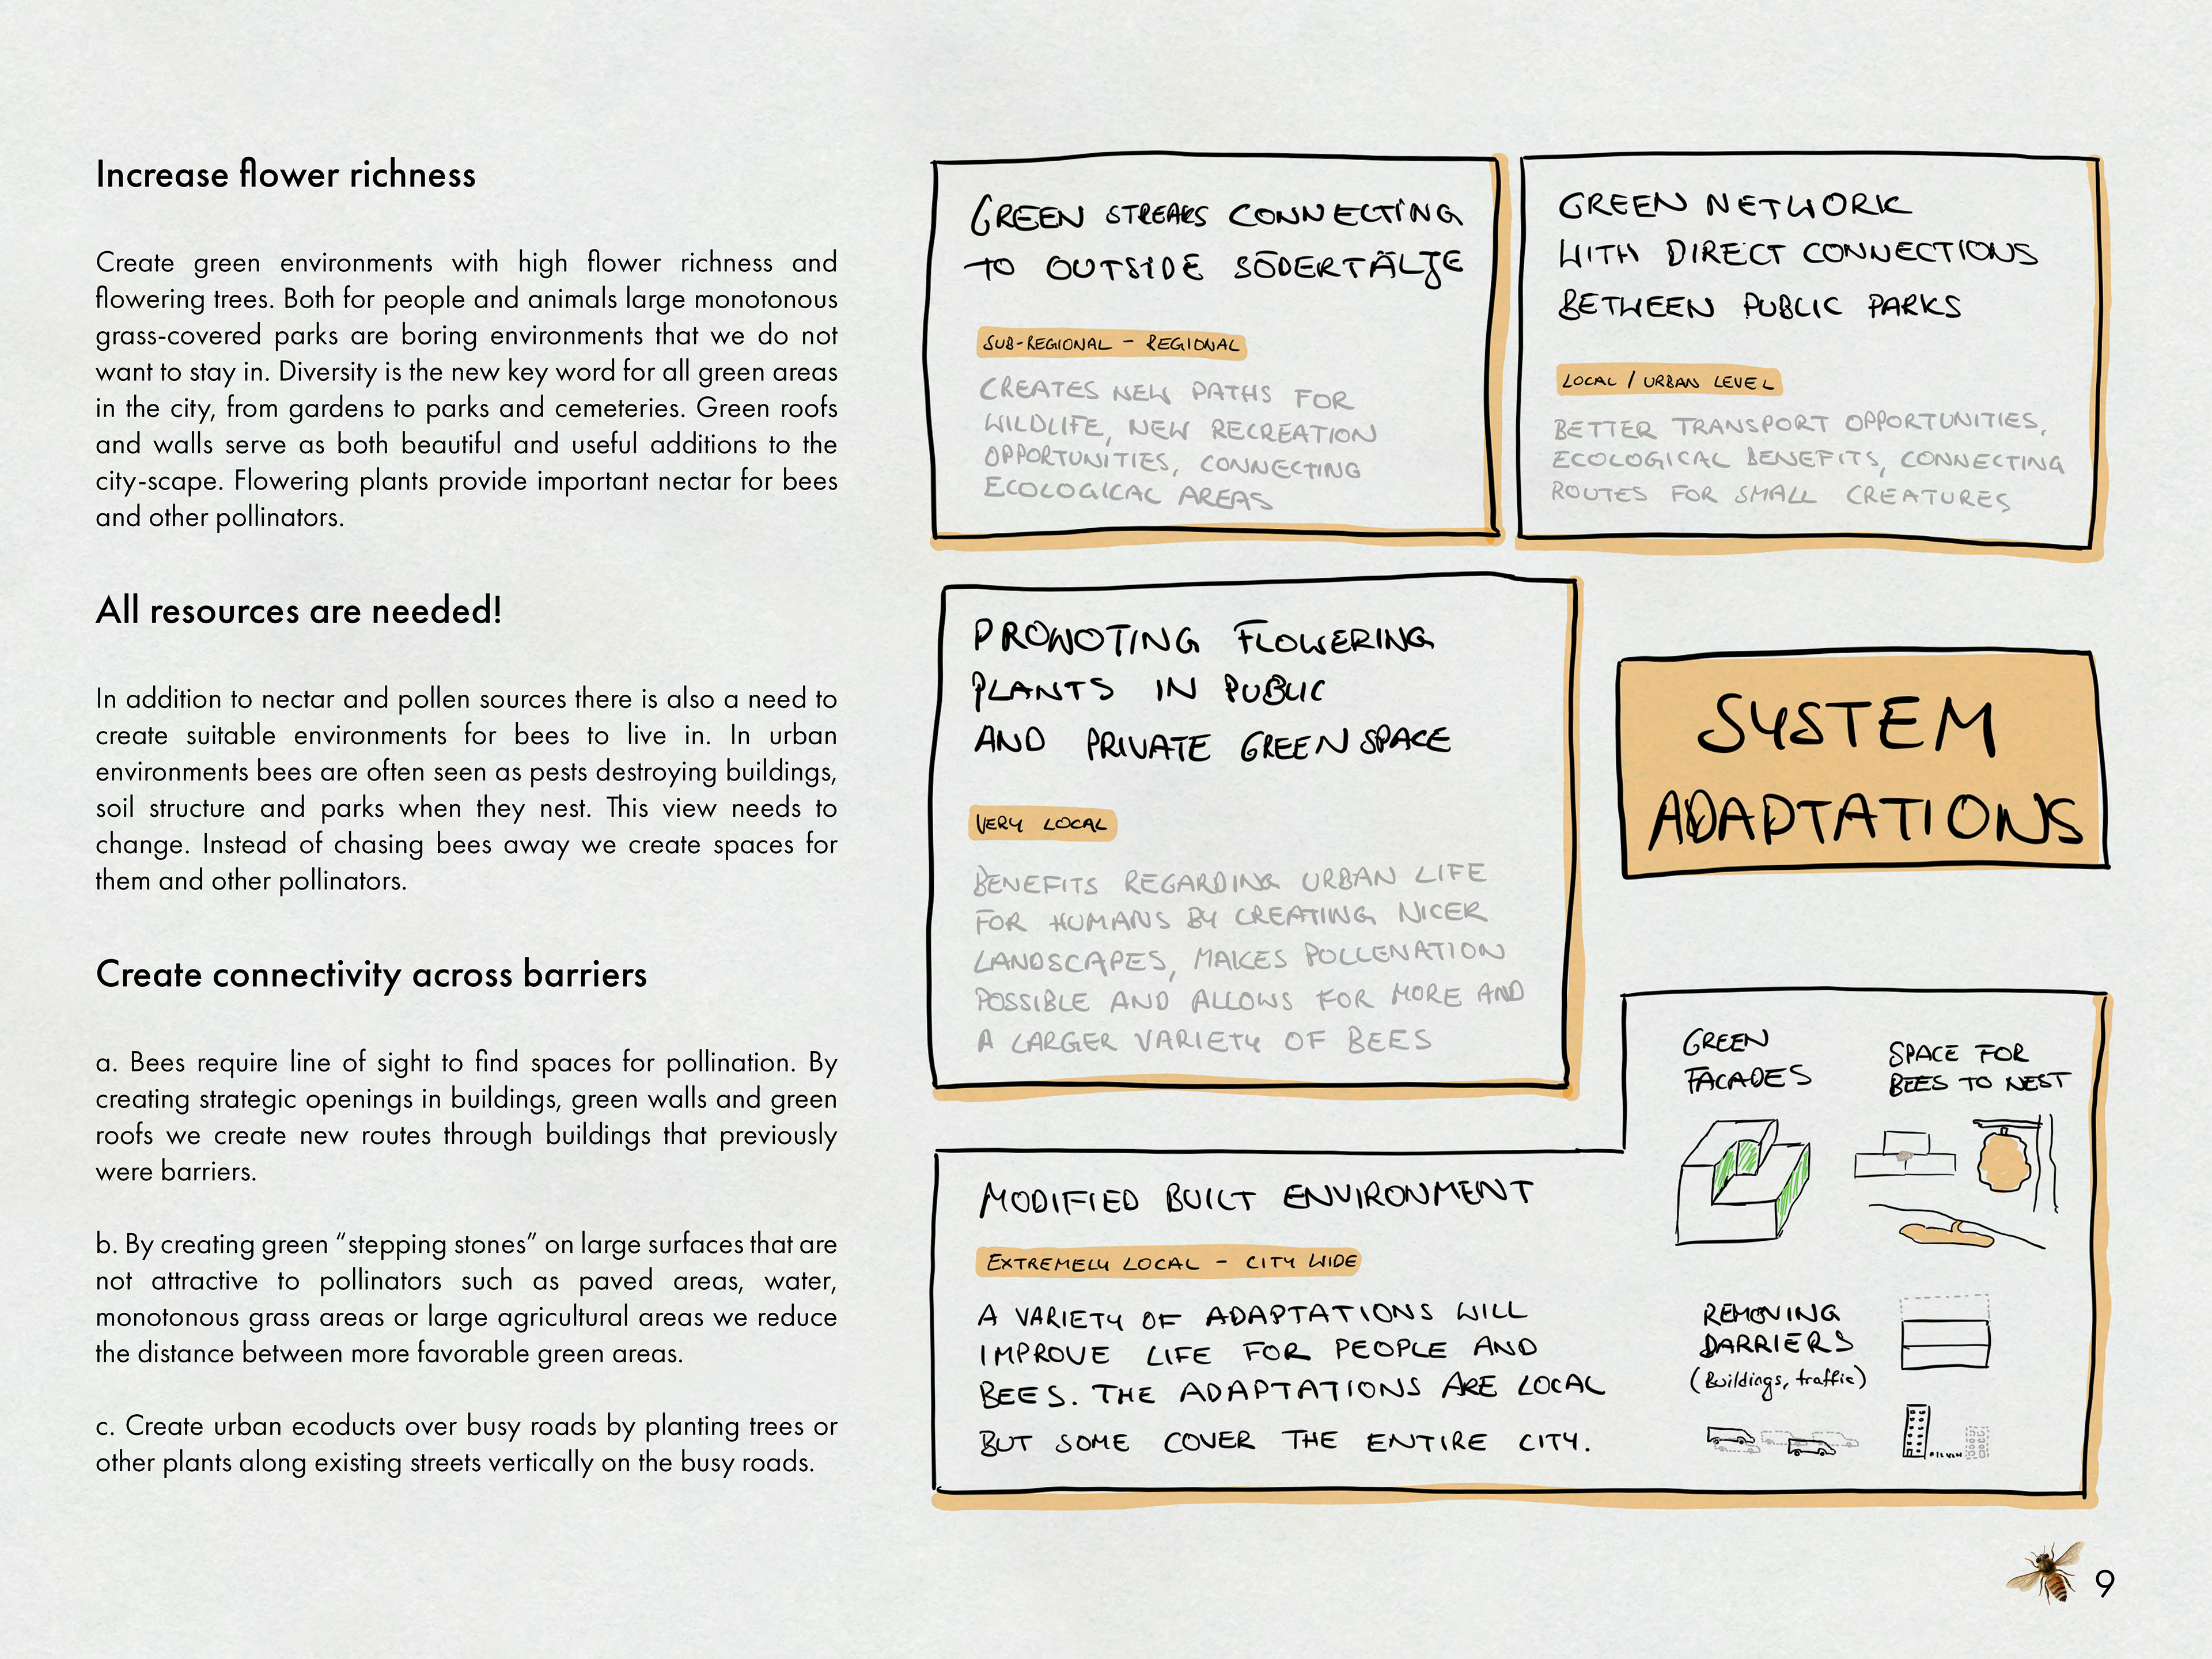 Increase flower richness
Create green environments with high flower richness and
flowering trees. Both for people and animals large monotonous
grass-covered parks are boring environments that we do not
want to stay in. Diversity is the new key word for all green areas
in the city, from gardens to parks and cemeteries. Green roofs
and walls serve as both beautiful and useful additions to the
city-scape. Flowering plants provide important nectar for bees
and other pollinators.
All resources are needed!
In addition to nectar and pollen sources there is also a need to
create suitable environments for bees to live in. In urban
environments bees are often seen as pests destroying buildings,
soil structure and parks when they nest. This view needs to
change. Instead of chasing bees away we create spaces for
them and other pollinators.
Create connectivity across barriers
a. Bees require line of sight to find spaces for pollination. By
creating strategic openings in buildings, green walls and green
roofs we create new routes through buildings that previously
were barriers.
b. By creating green “stepping stones” on large surfaces that are
not attractive to pollinators such as paved areas, water,
monotonous grass areas or large agricultural areas we reduce
the distance between more favorable green areas.
c. Create urban ecoducts over busy roads by planting trees or
other plants along existing streets vertically on the busy roads.
GREEN STREAKS CONNECTING
TO OUTSIDE SÖDERTÄLJE
SUB-REGIONAL - REGIONAL
CREATES NEW PATHS FOR
WILDLIFE, NEW RECREATION
OPPORTUNITIES, CONNECTING
ECOLOGICAL AREAS
GREEN NETWORK
WITH DIRECT CONNECTIONS
BETWEEN PUBLIC PARKS
LOCAL / URBAN LEVEL
BETTER TRANSPORT OPPORTUNITIES,
ECOLOGICAL BENEFITS, CONNECTING
ROUTES FOR SMALL CREATURES
PROMOTING FLOWERING
PLANTS IN PUBLIC
AND PRIVATE GREEN SPACE
VERY LOCAL
BENEFITS REGARDING URBAN LIFE
FOR HUMANS BY CREATING NICER
LANDSCAPES, MAKES POLLENATION
POSSIBLE AND ALLOWS FOR MORE AND
A LARGER VARIETY OF BEES
SYSTEM
ADAPTATIONS
MODIFIED BUILT ENVIRONMENT
EXTREMELY LOCAL - CITY WIDE
A VARIETY OF ADAPTATIONS WILL
IMPROVE LIFE FOR PEOPLE AND
BEES. THE ADAPTATIONS ARE LOCAL
BUT SOME COVER THE ENTIRE CITY.
GREEN
FACADES
SPACE FOR
BEES TO NEST
REMOVING
BARRIERS
(Buildings, traffic)
9